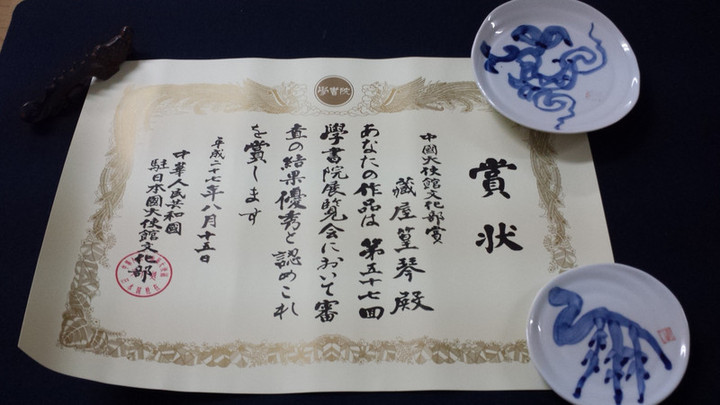 學書院
賞状
中國大使館文化部賞
藏屋篁琴殿
あなたの作品は第五十七回
學書院展覧会において審
査の結果優秀と認めこれ
を賞します
平成二十七年八月十五日
中華人民共和國
駐日本國大使館文化部